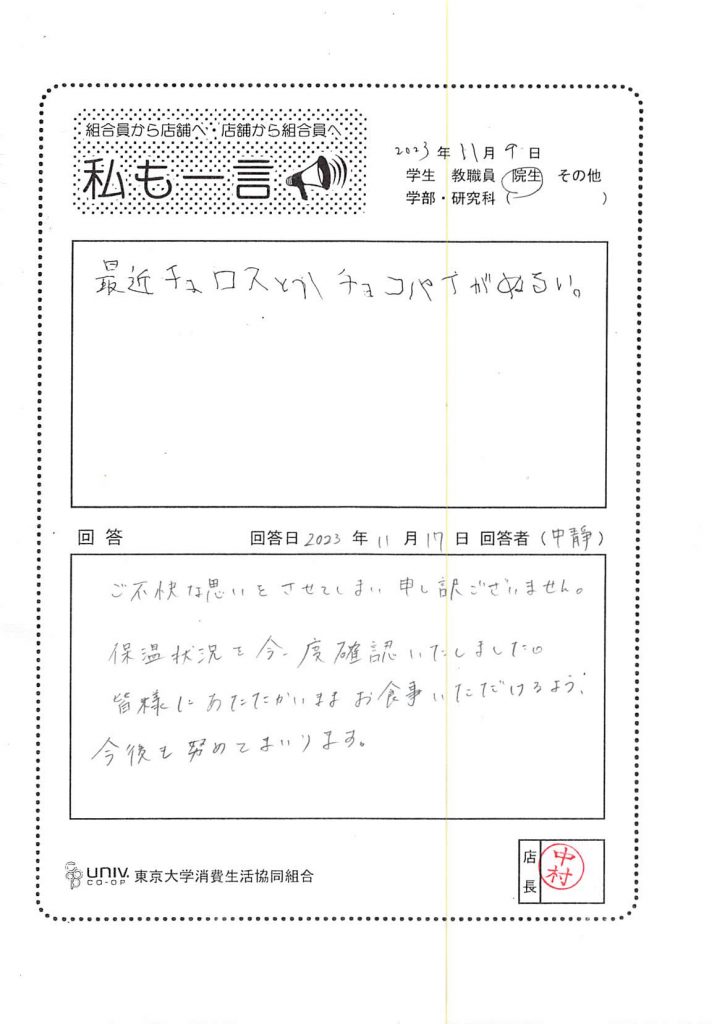 組合員から店舗へ・店舗から組合員へ
私も一言
2023年11月9日
学生 教職員 院生 その他
学部・研究科( )
最近チュロスとか チョコパイがぬるい。
回答 回答日 2023年 11月17日 回答者(中靜)
ご不快な思いをさせてしまい申し訳ございません。
保温状況を今一度確認いたしました。
皆様にあたたかいままお食事いただけるよう、
今後も努めてまいります。
店長
中村
UNIV. CO-OP 東京大学消費生活協同組合